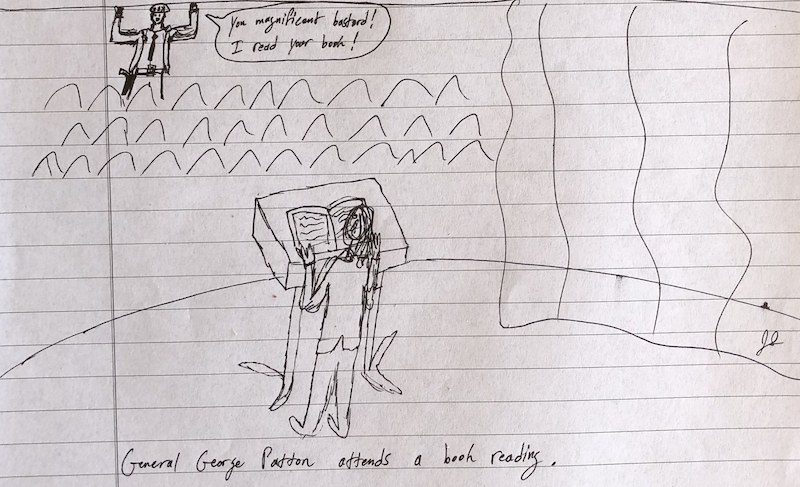 You magnificent bastard!
I read your book!
General George Patton attends a book reading.